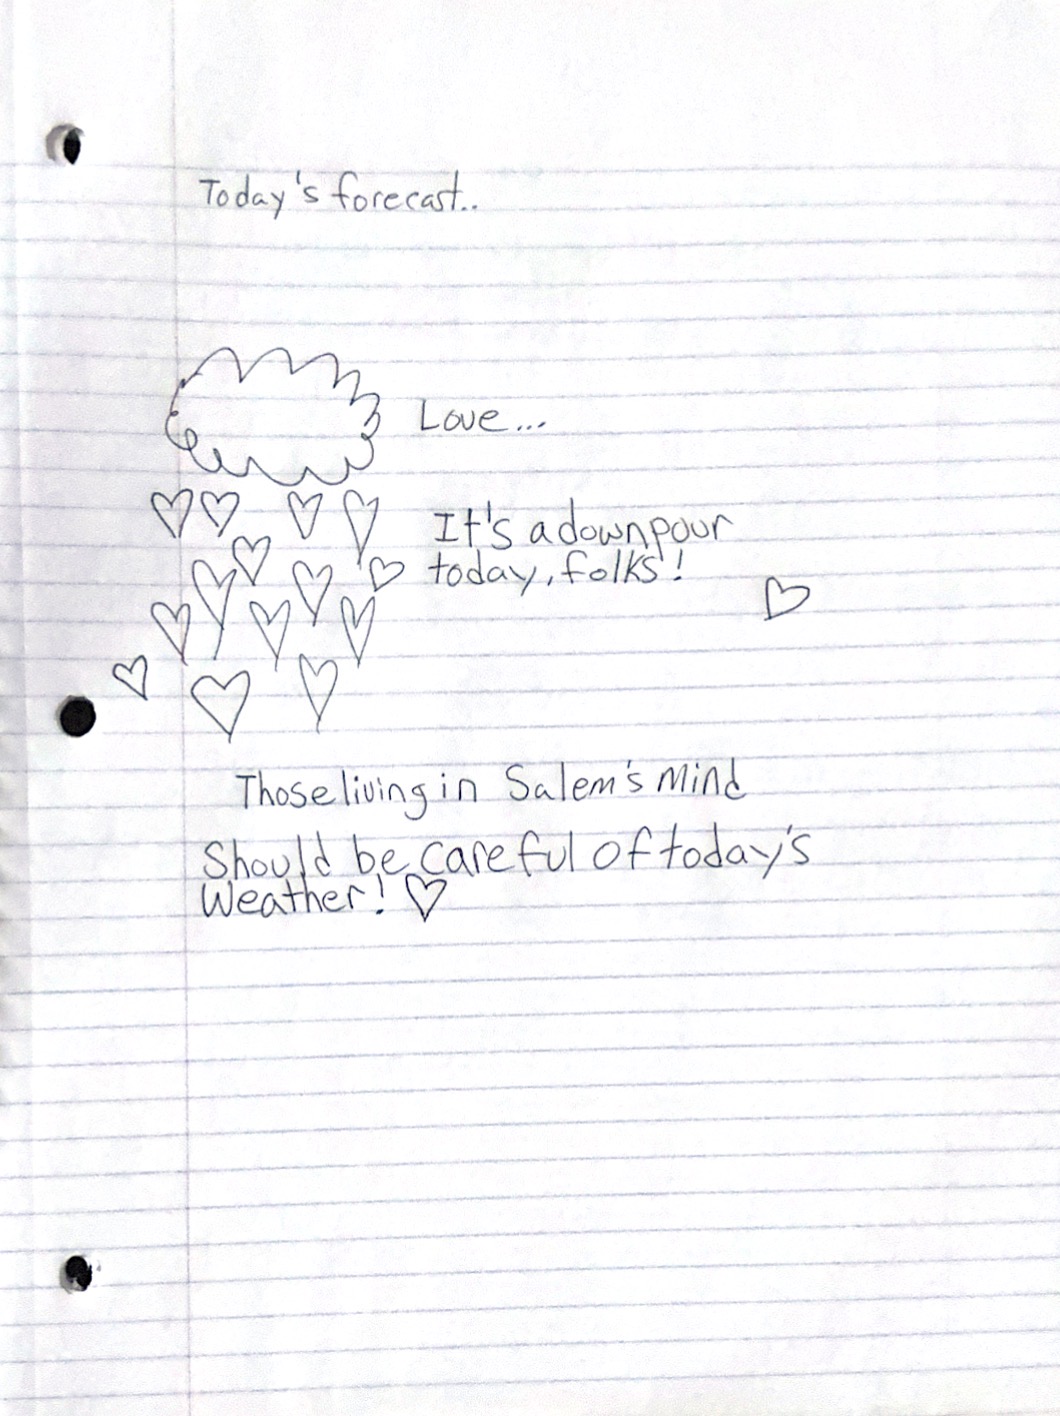 Today's forecast..
Love...
It's a downpour
today, folks!
Those living in Salem's Mind
Should be careful of today's
Weather!